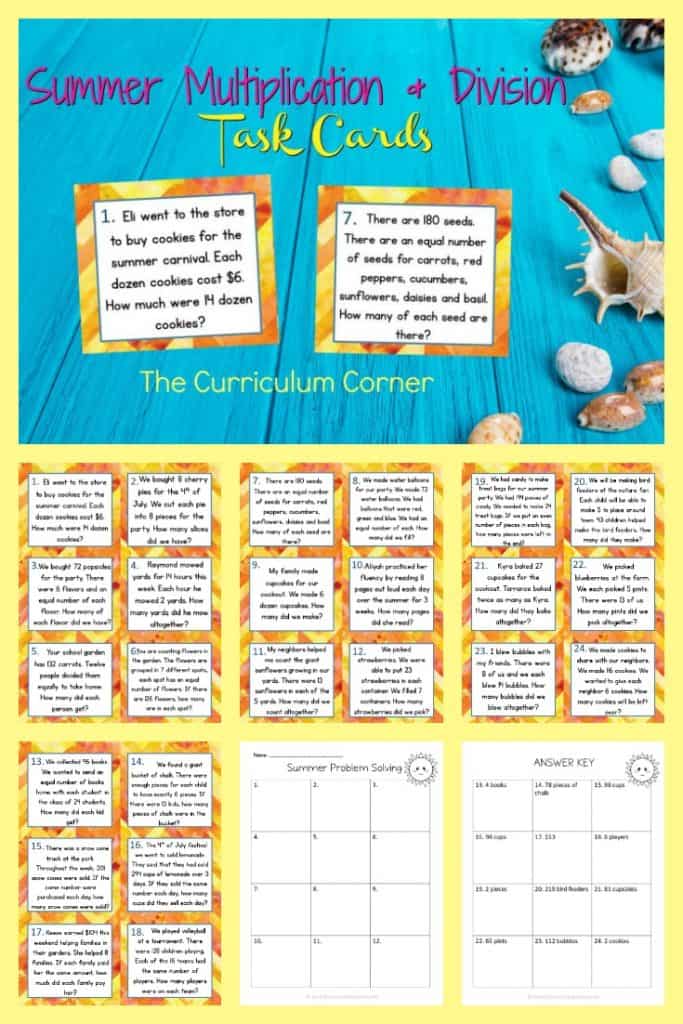 Summer Multiplication & Division
Task Cards
1. Eli went to the store
to buy cookies for the
summer carnival. Each
dozen cookies cost $6.
How much were 14 dozen
cookies?
7. There are 180 seeds.
There are an equal number
of seeds for carrots, red
peppers, cucumbers,
sunflowers, daisies and basil.
How many of each seed are
there?
The Curriculum Corner
1. Eli went to the store
to buy cookies for the
summer carnival. Each
dozen cookies cost $6.
How much were 14 dozen
cookies?
2. We bought 8 cherry
pies for the 4th of
July. We cut each pie
into 8 pieces for the
party. How many slices
did we have?
3. We bought 72 popsicles
for the party. There
were 6 flavors and an
equal number of each
flavor. How many of
each flavor did we have?
4. Raymond mowed
yards for 14 hours this
week. Each hour he
mowed 2 yards. How
many yards did he mow
altogether?
5. Your school garden
has 132 carrots. Twelve
people divided them
equally to take home.
How many did each
person get?
6. You are counting flowers
in the garden. The flowers are
grouped in 7 different spots,
each spot has an equal
number of flowers. If there
are
flowers, how many
are in each spot?
7. There are 180 seeds.
There are an equal number
of seeds for carrots, red
peppers, cucumbers,
sunflowers, daisies and basil.
How many of each seed are
there?
8. We made water balloons
for our party. We made 72
water balloons. We had
balloons that were red,
green and blue. We had an
equal number of each. How
many did we fill?
9. My family made
cupcakes for our
cookout. We made 6
dozen cupcakes. How
many did we make?
10. Aliyah practiced her
fluency by reading 8
pages out loud each day
over the summer for 3
weeks. How many pages
did she read?
11. My neighbors helped
me count the giant
sunflowers growing in our
yards. There were 13
sunflowers in each of the
5 yards. How many did we
count altogether?
12. We picked
strawberries. We were
able to put 23
strawberries in each
container. We filled 7
containers. How many
strawberries did we pick?
19. We had candy to make
treat bags for our summer
party. We had 194 pieces of
candy. We needed to make 24
treat bags. If we put an even
number of pieces in each bag,
how many pieces were left in
the end?
20. We will be making bird
feeders at the nature fair.
Each child will be able to
make 5 to place around
town. 43 children helped
make the bird feeders. How
many did they make?
21. Kyra baked 27
cupcakes for the
cookout. Terrance baked
twice as many as Kyra.
How many did they bake
altogether?
22. We picked
blueberries at the farm.
We each picked 5 pints.
There were 13 of us.
How many pints did we
pick altogether?
23. I blew bubbles with
my friends. There were
8 of us and we each
blew 14 bubbles. How
many bubbles did we
blow altogether?
24. We made cookies to
share with our neighbors.
We made 16 cookies. We
wanted to give each
neighbor 6 cookies. How
many cookies will be left
over?
13. We collected 96 books.
We wanted to send an
equal number of books
home with each student in
the class of 24 students.
How many did each kid
get?
14. We found a giant
bucket of chalk. There were
enough pieces for each child
to have exactly 6 pieces. If
there were 13 kids, how many
pieces of chalk were in the
bucket?
15. There was a snow cone
truck at the park.
Throughout the week, 201
snow cones were sold. If the
same number were
purchased each day, how
many snow cones were sold?
16. The 4th of July festival
we went to sold lemonade.
They said that they had sold
294 cups of lemonade over 3
days. If they sold the same
number each day, how many
cups did they sell each day?
17. Keese earned $104 this
weekend helping families in
their gardens. She helped 8
families. If each family paid
her the same amount, how
much did each family pay
her?
18. We played volleyball
at a tournament. There
were 128 children playing.
Each of the 16 teams had
the same number of
players. How many players
were on each team?
Name
Summer Problem Solving
1. 2. 3.
4. 5. 6.
7. 8. 9.
10. 11. 12.
ANSWER KEY
13. 4 books 14. 78 pieces of chalk 15. 98 cups
16. 98 cups 17. $13 18. 8 players
19. 2 pieces 20. 215 bird feeders 21. 81 cupcakes
22. 65 pints 23. 112 bubbles 24. 2 cookies